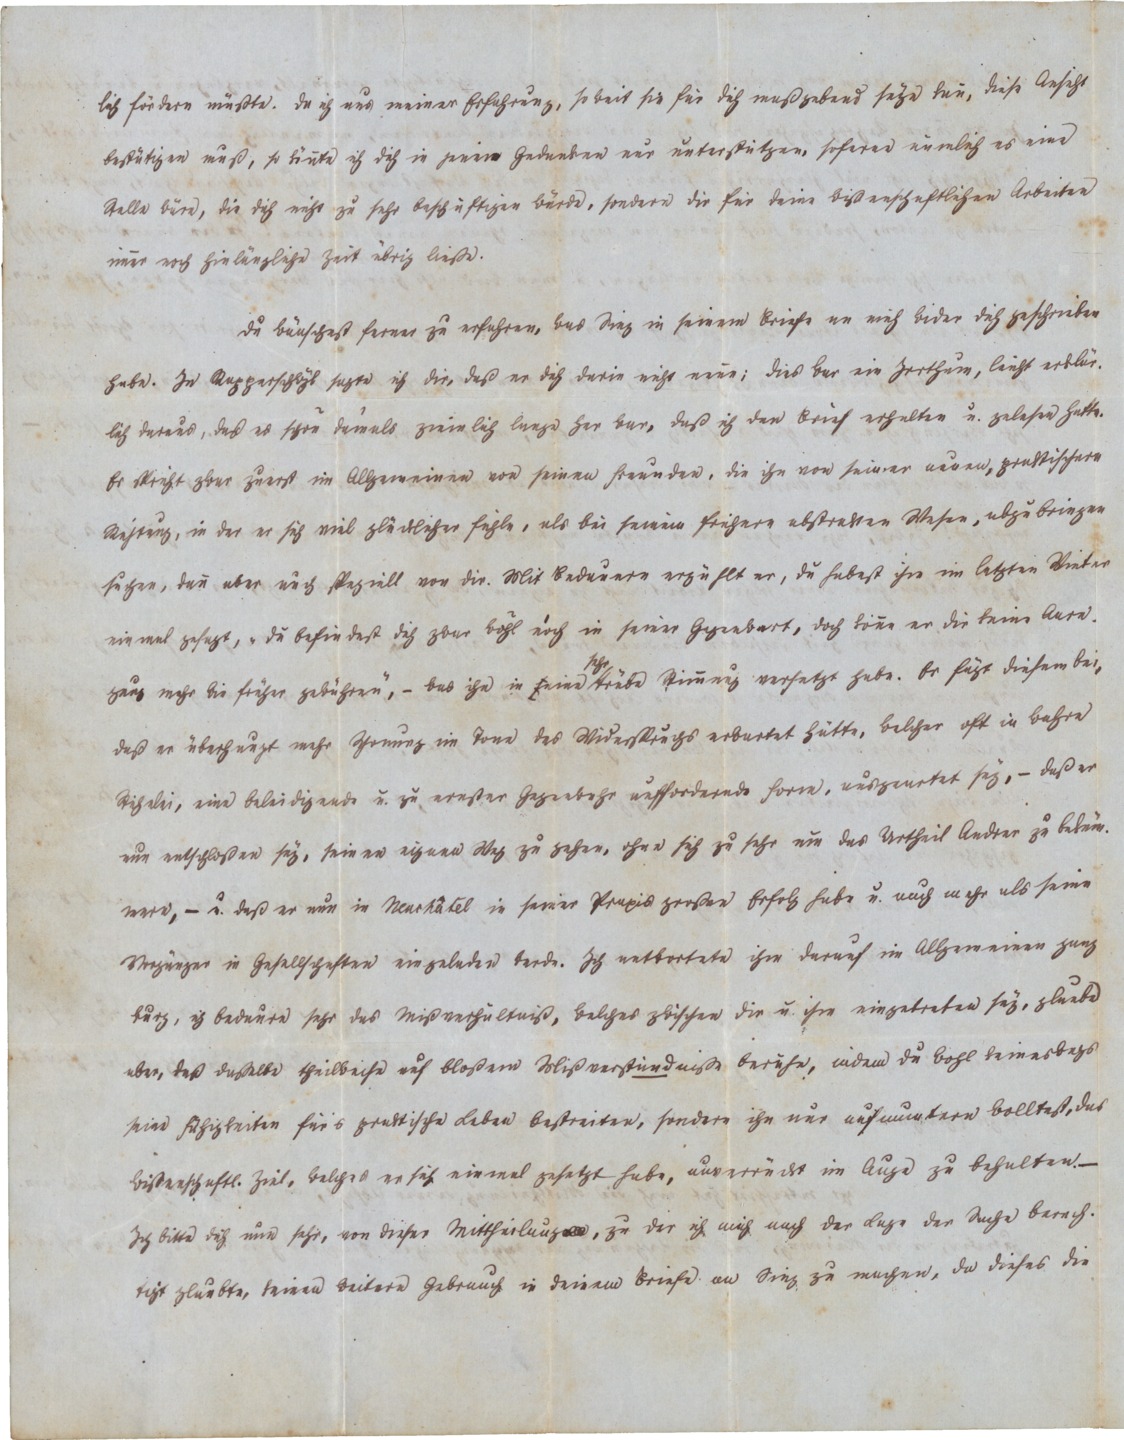 lich fördern müßte. Da ich aus meiner Erfahrung, soweit sie für dich maßgebend seyn kan̄, diese Ansicht
bestätigen muß, so kön̄te ich dich in jenem Gedanken nur unterstützen, soferne nämlich es eine
Stelle wäre, die dich nicht zu sehr beschäftigen würde, sondern dir für deine wissenschaftlichen Arbeiten
im̄er noch hinlängliche Zeit übrig ließe.
Du wünschest ferner zu erfahren, was Sieg in seinem Briefe an mich wider dich geschrieben
habe. In Rapperschwyl sagte ich dir, daß er dich darin nicht nen̄e; dies war ein Irrthum, leicht erklär-
lich daraus, daß es schon damals ziemlich lange her war, daß ich den Brief erhalten u. gelesen hatte.
Er spricht zwar zuerst im Allgemeinen von seinen Freunden, die ihn von seiner neuen, praktischern
Richtung, in der er sich viel glücklicher fühle, als bei seinem frühern abstrakten Wesen, abzubringen
suchen, dan̄ aber auch speziell von dir. Mit Bedauern erzählt er, du habest ihm im letzten Winter
einmal gesagt, „du befindest dich zwar wohl noch in seiner Gegenwart, doch kön̄e er dir keine Anre-
gung mehr wie früher gewähren", – was ihn in eine sehr trübe Stim̄ung versetzt habe. Er fügt diesem bei,
daß er überhaupt mehr Schonung im Tone des Widerspruchs erwartet hätte, welcher oft in wahre
Stichelei, eine beleidigende u. zu ernster Gegenwehr auffordernde Form, ausgeartet sey, – daß er
nun entschlossen sey, seinen eignen Weg zu gehen, ohne sich zu sehr um das Urtheil Andrer zu beküm-
mern, – u. daß er nun in Neuchâtel in seiner Praxis großen Erfolg habe u. auch mehr als seine
Vorgänger in Gesellschaften eingeladen werde. Ich antwortete ihm darauf im Allgemeinen ganz
kurz, ich bedaure sehr das Mißverhältniß, welches zwischen dir u. ihm eingetreten sey, glaube
aber, daß dasselbe theilweise auf bloßem Mißverständnisse beruhe, indem du wohl keineswegs
seine Fähigkeiten für's praktische Leben bestreiten, sondern ihn nur aufmuntern wolltest, das
wissenschaftl. Ziel, welches er sich einmal gesetzt habe, unverrückt im Auge zu behalten. –
Ich bitte dich nun sehr, von dieser Mittheilung, zu der ich mich nach der Lage der Sache berech-
tigt glaubte, keinen weitern Gebrauch in deinem Briefe an Sieg zu machen, da dieses die